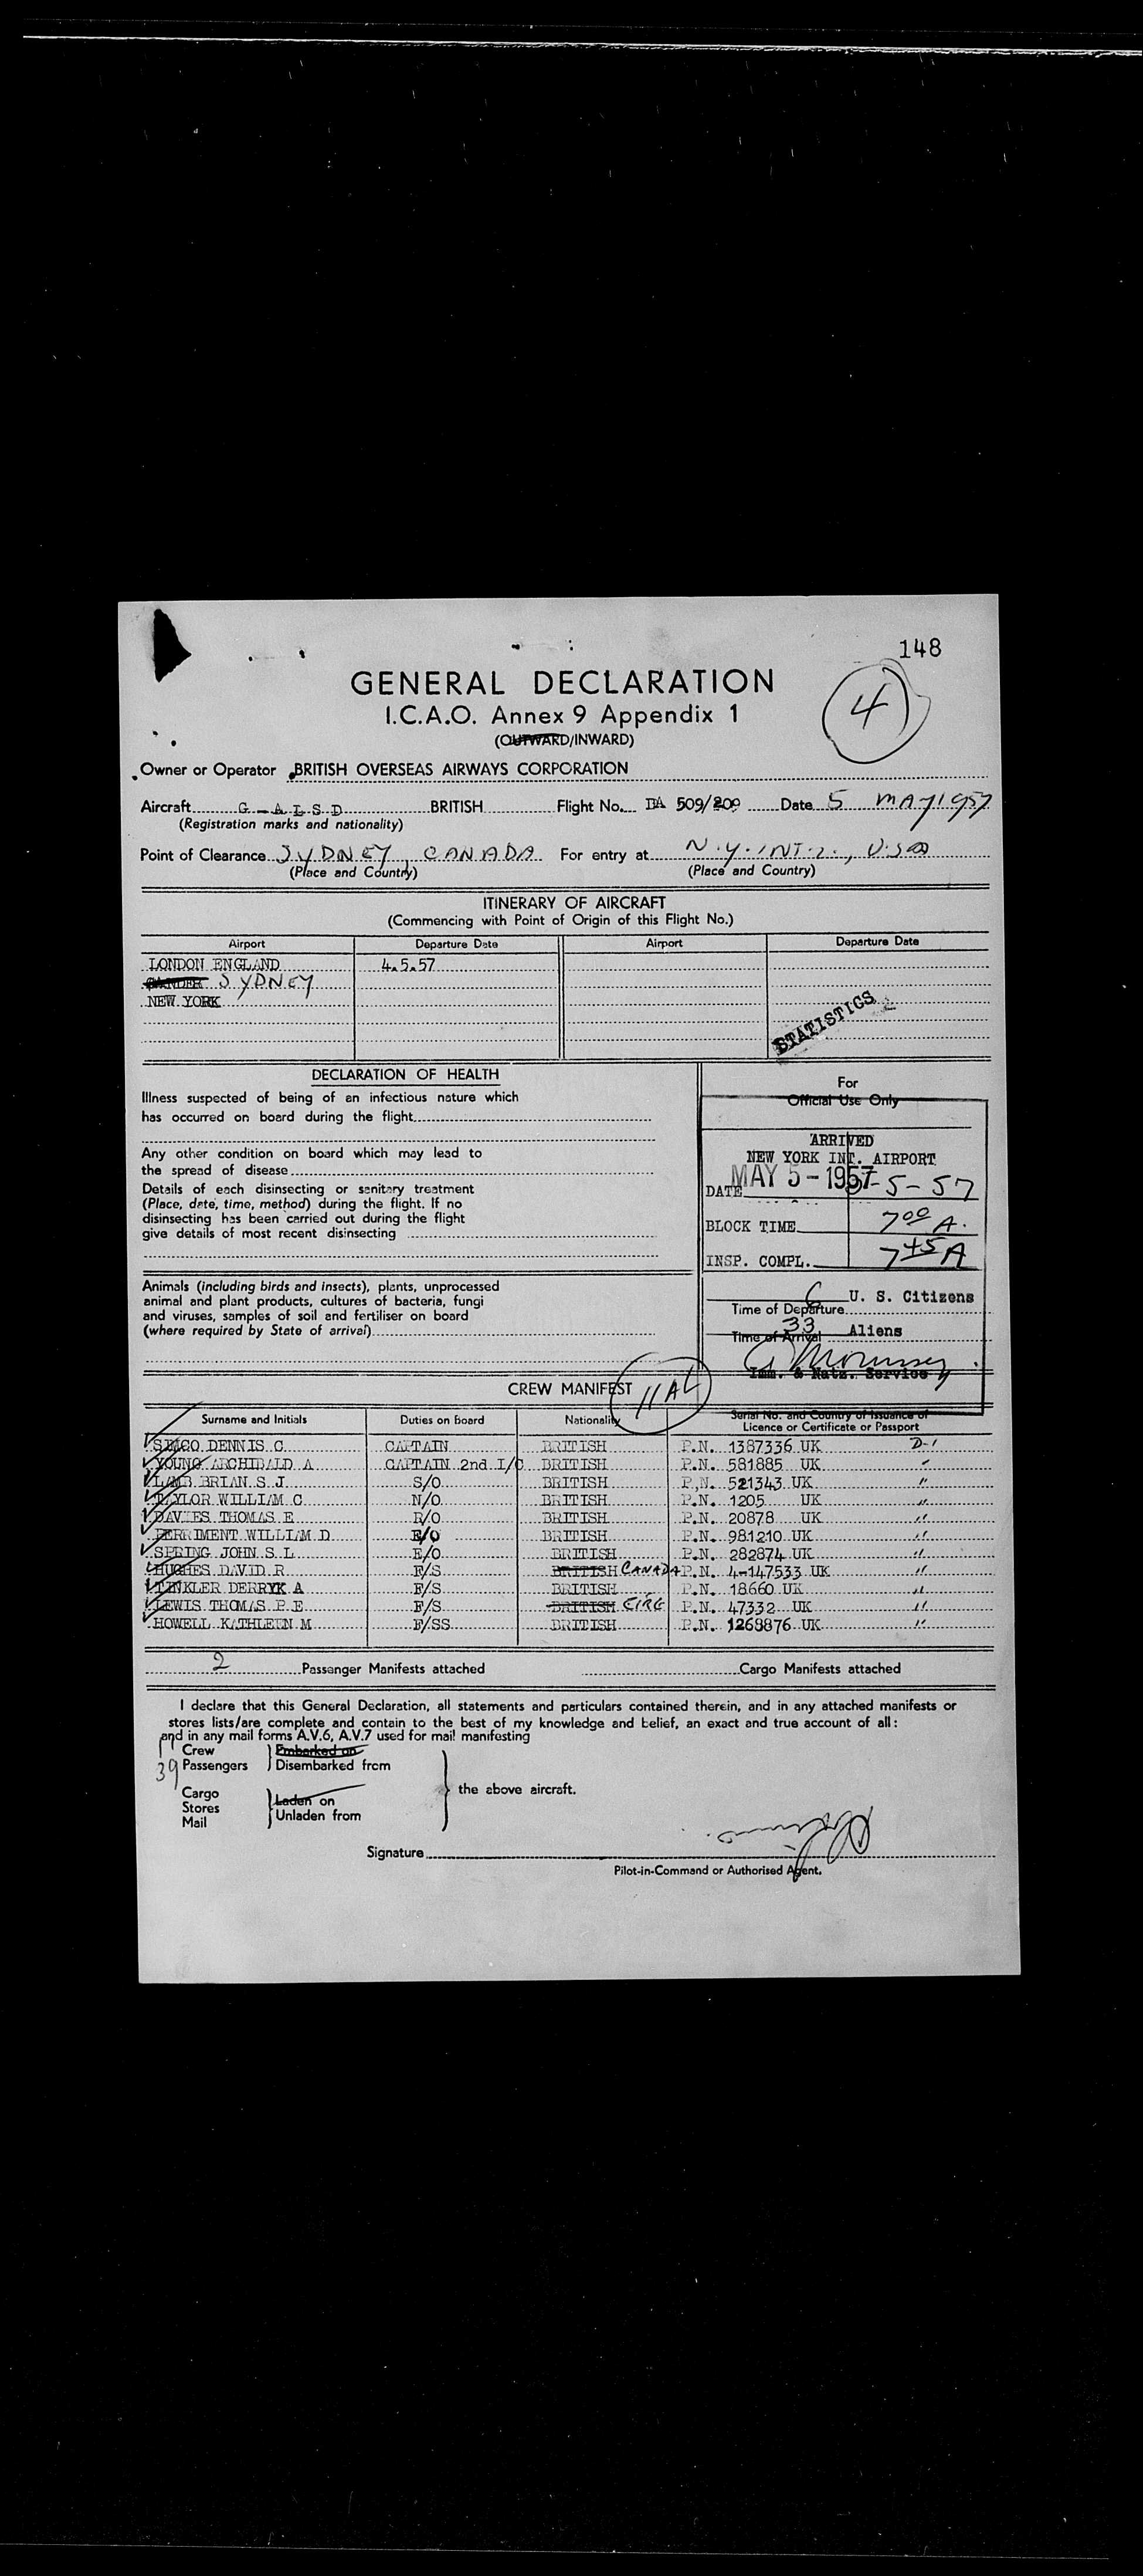 148
GENERAL DECLARATION
4
I.C.A.O. Annex 9 Appendix 1
(OUTWARD/INWARD)
Owner or Operator BRITISH OVERSEAS AIRWAYS CORPORATION
Aircraft G-ALSD BRITISH Flight No. BA 509/209 Date 5 MAY 1957
(Registration marks and nationality)
Point of Clearance SYDNEY, CANADA For entry at N.Y. INT'L., USA
(Place and Country) (Place and Country)
ITINERARY OF AIRCRAFT
(Commencing with Point of Origin of this Flight No.)
Airport Departure Date Airport Departure Date
LONDON ENGLAND 4.5.57
GANDER SYDNEY
NEW YORK
STATISTICS
DECLARATION OF HEALTH
Illness suspected of being of an infectious nature which
has occurred on board during the flight
Any other condition on board which may lead to
the spread of disease
Details of each disinsecting or sanitary treatment
(Place, date, time, method) during the flight. If no
disinsecting has been carried out during the flight
give details of most recent disinsecting
Animals (including birds and insects), plants, unprocessed
animal and plant products, cultures of bacteria, fungi
and viruses, samples of soil and fertiliser on board
(where required by State of arrival)
For
Official Use Only
ARRIVED
NEW YORK INT. AIRPORT
MAY 5-1957
DATE 5-5-57
BLOCK TIME 700 A.
INSP. COMPL. 745 A
6 U. S. Citizens
Time of Departure
33 Aliens
Time of Arrival
Imm. & Natz. Service
CREW MANIFEST 11 AL
Surname and Initials Duties on Board Nationality Serial No. and Country of Issuance of
Licence or Certificate or Passport
SIMCO DENNIS C CAPTAIN BRITISH P.N. 1387336 UK D-1
YOUNG ARCHIBALD A CAPTAIN 2nd I/C BRITISH P.N. 581885 UK "
LAMB BRIAN S J S/O BRITISH P.N. 521343 UK "
TAYLOR WILLIAM C N/O BRITISH P.N. 1205 UK "
DAVIES THOMAS E R/O BRITISH P.N. 20878 UK "
PERRIMENT WILLIAM D E/O BRITISH P.N. 981210 UK "
SPRING JOHN S L E/O BRITISH P.N. 282874 UK "
HUGHES DAVID R F/S BRITISH CANADA P.N. 4-147533 UK "
TINKLER DERRYK A F/S BRITISH P.N. 18660 UK "
LEWIS THOMAS P E F/S BRITISH EIRE P.N. 47332 UK "
HOWELL KATHLEEN M F/SS BRITISH P.N. 1268876 UK "
2 Passenger Manifests attached Cargo Manifests attached
I declare that this General Declaration, all statements and particulars contained therein, and in any attached manifests or
stores lists/are complete and contain to the best of my knowledge and belief, an exact and true account of all:
and in any mail forms A.V.6, A.V.7 used for mail manifesting
11 Crew Embarked on
39 Passengers Disembarked from
the above aircraft.
Cargo Laden on
Stores
Mail Unladen from
Signature
Pilot-in-Command or Authorised Agent.